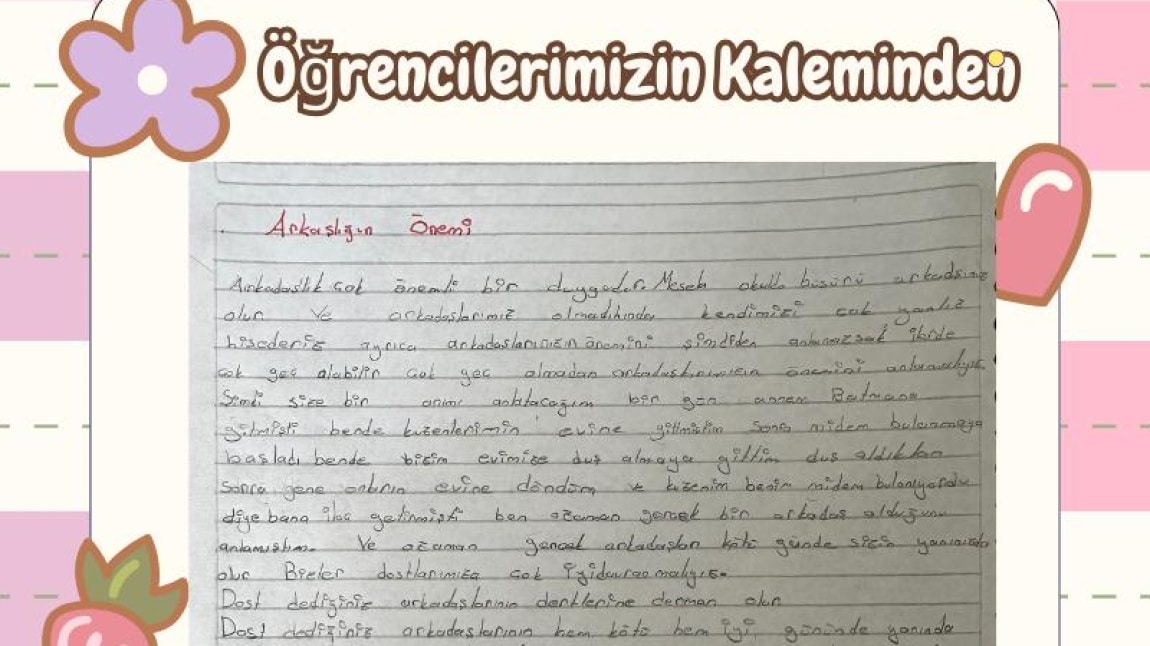 Öğrencilerimizin Kaleminden
Arkaşlığın Önemi
Arkadaşlık çok önemli bir duygudur. Mesela okulda büsürü arkadşımız
olur ve arkadaşlarımız olmadıhında kendimizi çok yanlız
hisederiz ayrıca arkadaşlarımızın önemini şimdiden anlamazsak ilride
çok geç olabilir çok geç olmadan önemini anlamalıyız
Şimdi size bir anımı anlatacağım bir gün annem Batmana
gitmişti bende kuzenlerimin evine gitmiştim sonra midem bulanmaya
başladı bende bizim evimize duş almaya gittim duş aldıktan
sonra gene onların evine döndüm ve kuzenim benim midem bulanıyordu
diye bana ilaç getirmişti ben ozaman gerçek bir arkadaş olduğunu
anlamıştım. Ve ozaman gerçek arkadaşlar kötü günde sizin yanınızda
olur Bizler dostlarımıza çok iyi malıyız.
Dost dediğiniz arkadaşlarının dertlerine derman olur
Dost dediğiniz arkadaşlarının hem kötü hem iyi gününde yanında